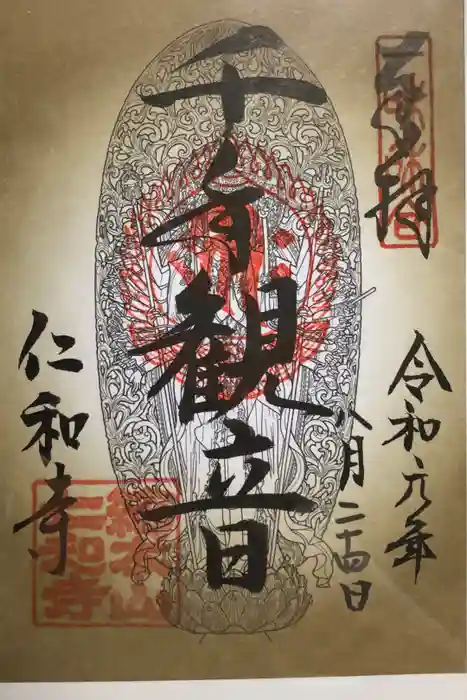 奉拝
令和六年
八月二十四日
千手観音
仁和寺
総本山
仁和寺